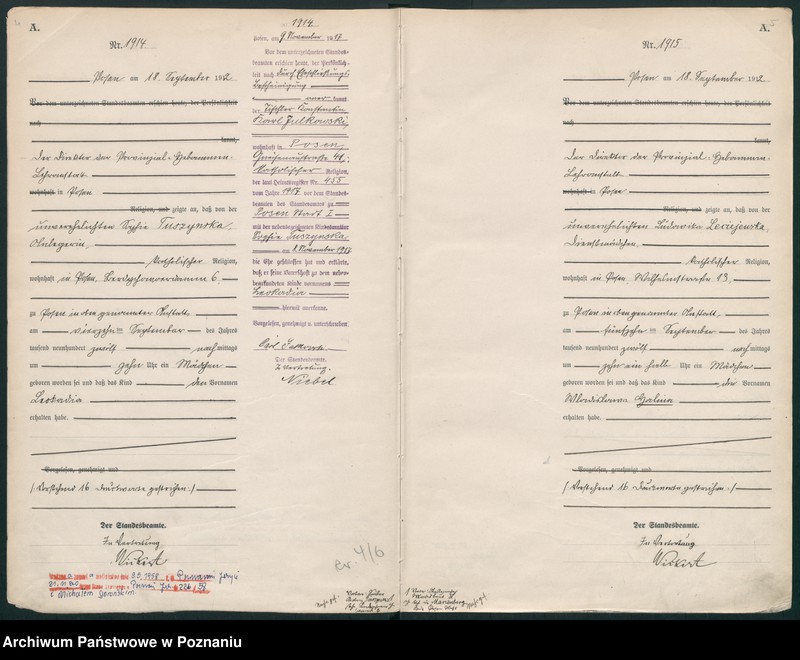 A.
Nr. 1914.
Posen am 18. September 1912
Vor dem unterzeichneten Standesbeamten erschien heute, der Persönlichkeit
nach
kannt,
Der Direktor der Provinzial-Hebammen-
Lehranstalt
wohnhaft in Posen
Religion, und zeigte an, daß von der
unverehelichten Sophie Tuszynska,
katholischer Religion,
wohnhaft in Posen, 6
zu Posen in obengenannter Anstalt
am vierzehn ten September des Jahres
tausend neunhundert zwölf nachmittags
um zehn Uhr ein Mädchen
geboren worden sei und daß das Kind den Vornamen
Leokadia
erhalten habe.
Vorgelesen, genehmigt und
(Vorstehend 16 Druckworte gestrichen.)
Der Standesbeamte.
In Vertretung
Wickert
1914.
Posen, am 9. November 1917
Vor dem unterzeichneten Standes-
beamten erschien heute, der Persönlich-
keit nach durch Eheschließungs-
bescheinigung
aner kannt
der Tischler Konstantin
Karl Julkowski,
wohnhaft in Posen,
Gneisenaustraße 41,
katholischer Religion,
der laut Heiratsregister Nr. 455
vom Jahre 1917 vor dem Standes-
beamten des Standesamts zu
Posen Stadt I
mit der nebenbezeichneten
Sophie Tuszynska
am 8. November 1917
die Ehe geschlossen hat und erklärte,
daß er seine Vaterschaft zu dem neben-
beurkundeten Kinde namens
Leokadia
hiermit anerkenne.
Vorgelesen, genehmigt u. unterschrieben.
Der Standesbeamte.
In Vertretung.
Niebel
A.
Nr. 1915.
Posen am 18. September 1912
Vor dem unterzeichneten Standesbeamten erschien heute, der Persönlichkeit
nach
kannt,
Der Direktor der Provinzial-Hebammen-
Lehranstalt
wohnhaft in Posen
Religion, und zeigte an, daß von der
unverehelichten Ludowika
Dienstmädchen,
katholischer Religion,
wohnhaft in Posen Wilhelmstraße 13,
zu Posen in obengenannter Anstalt,
am fünfzehn ten September des Jahres
tausend neunhundert zwölf nachmittags
um zehn ein halb Uhr ein Mädchen
geboren worden sei und daß das Kind die Vornamen
Wladislawa Halina
erhalten habe.
Vorgelesen, genehmigt und
(Vorstehend 16 Druckworte gestrichen.)
Der Standesbeamte.
In Vertretung
Wickert
Archiwum Państwowe w Poznaniu